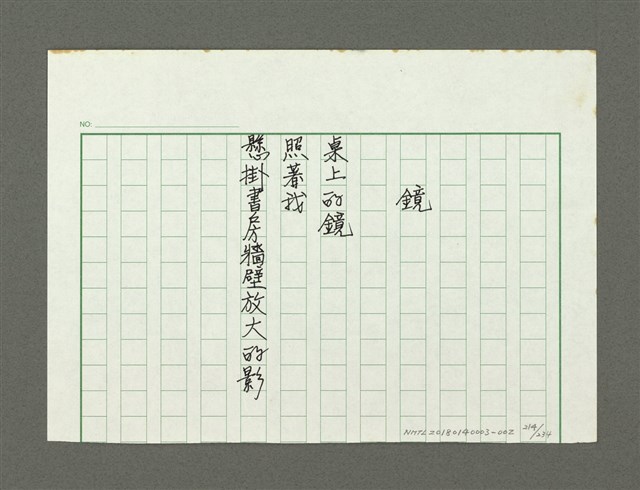 NO:
鏡
桌上的鏡
照著我
懸掛書房牆壁放大的影
NMTL20180140003-002
214/234